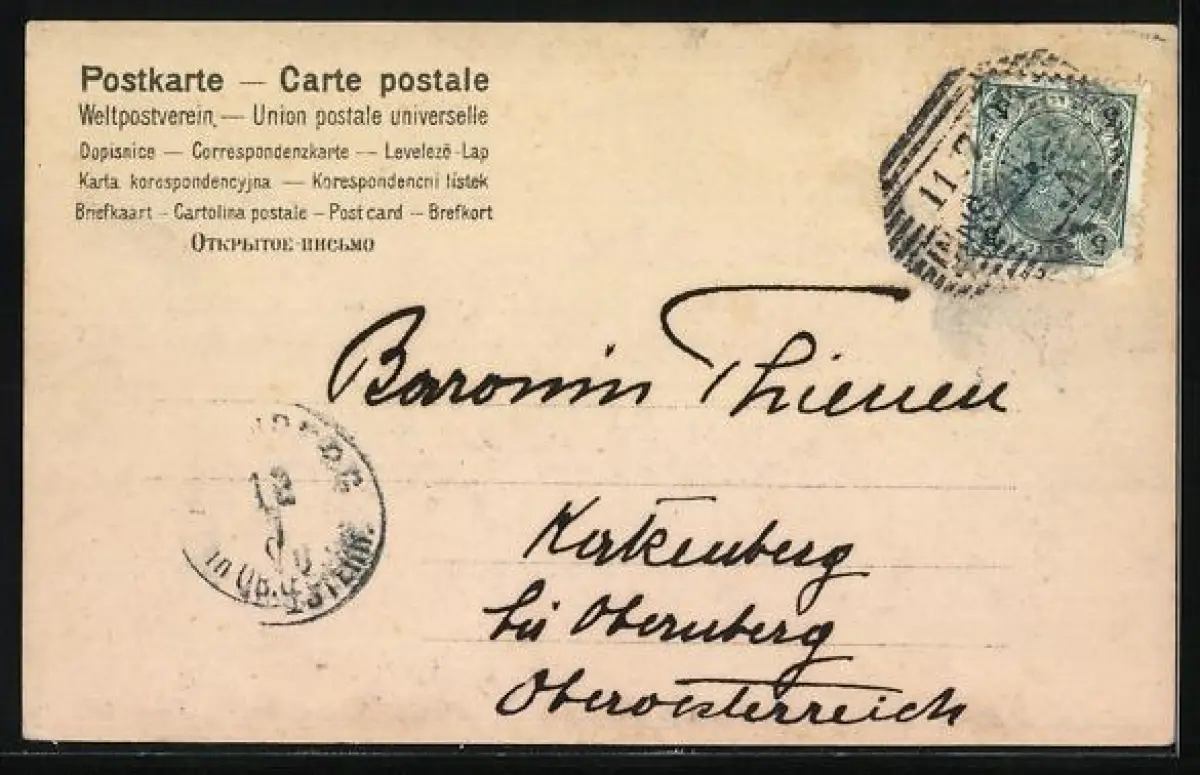 Postkarte — Carte postale
Weltpostverein — Union postale universelle
Dopisnice — Correspondenzkarte — Levelező-Lap
Karta korespondencyjna — Korespondencni listek
Briefkaart – Cartolina postale – Post card – Brefkort
Открытое письмо
11.
5
Baronin Thienen
Katzenberg
bei Obernberg
Oberoesterreich
12
in Ob.